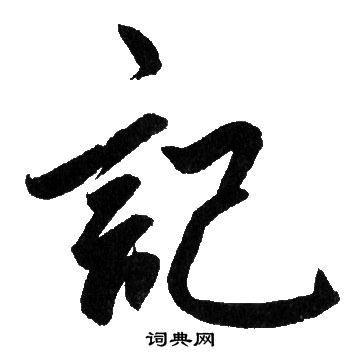 記
词典网